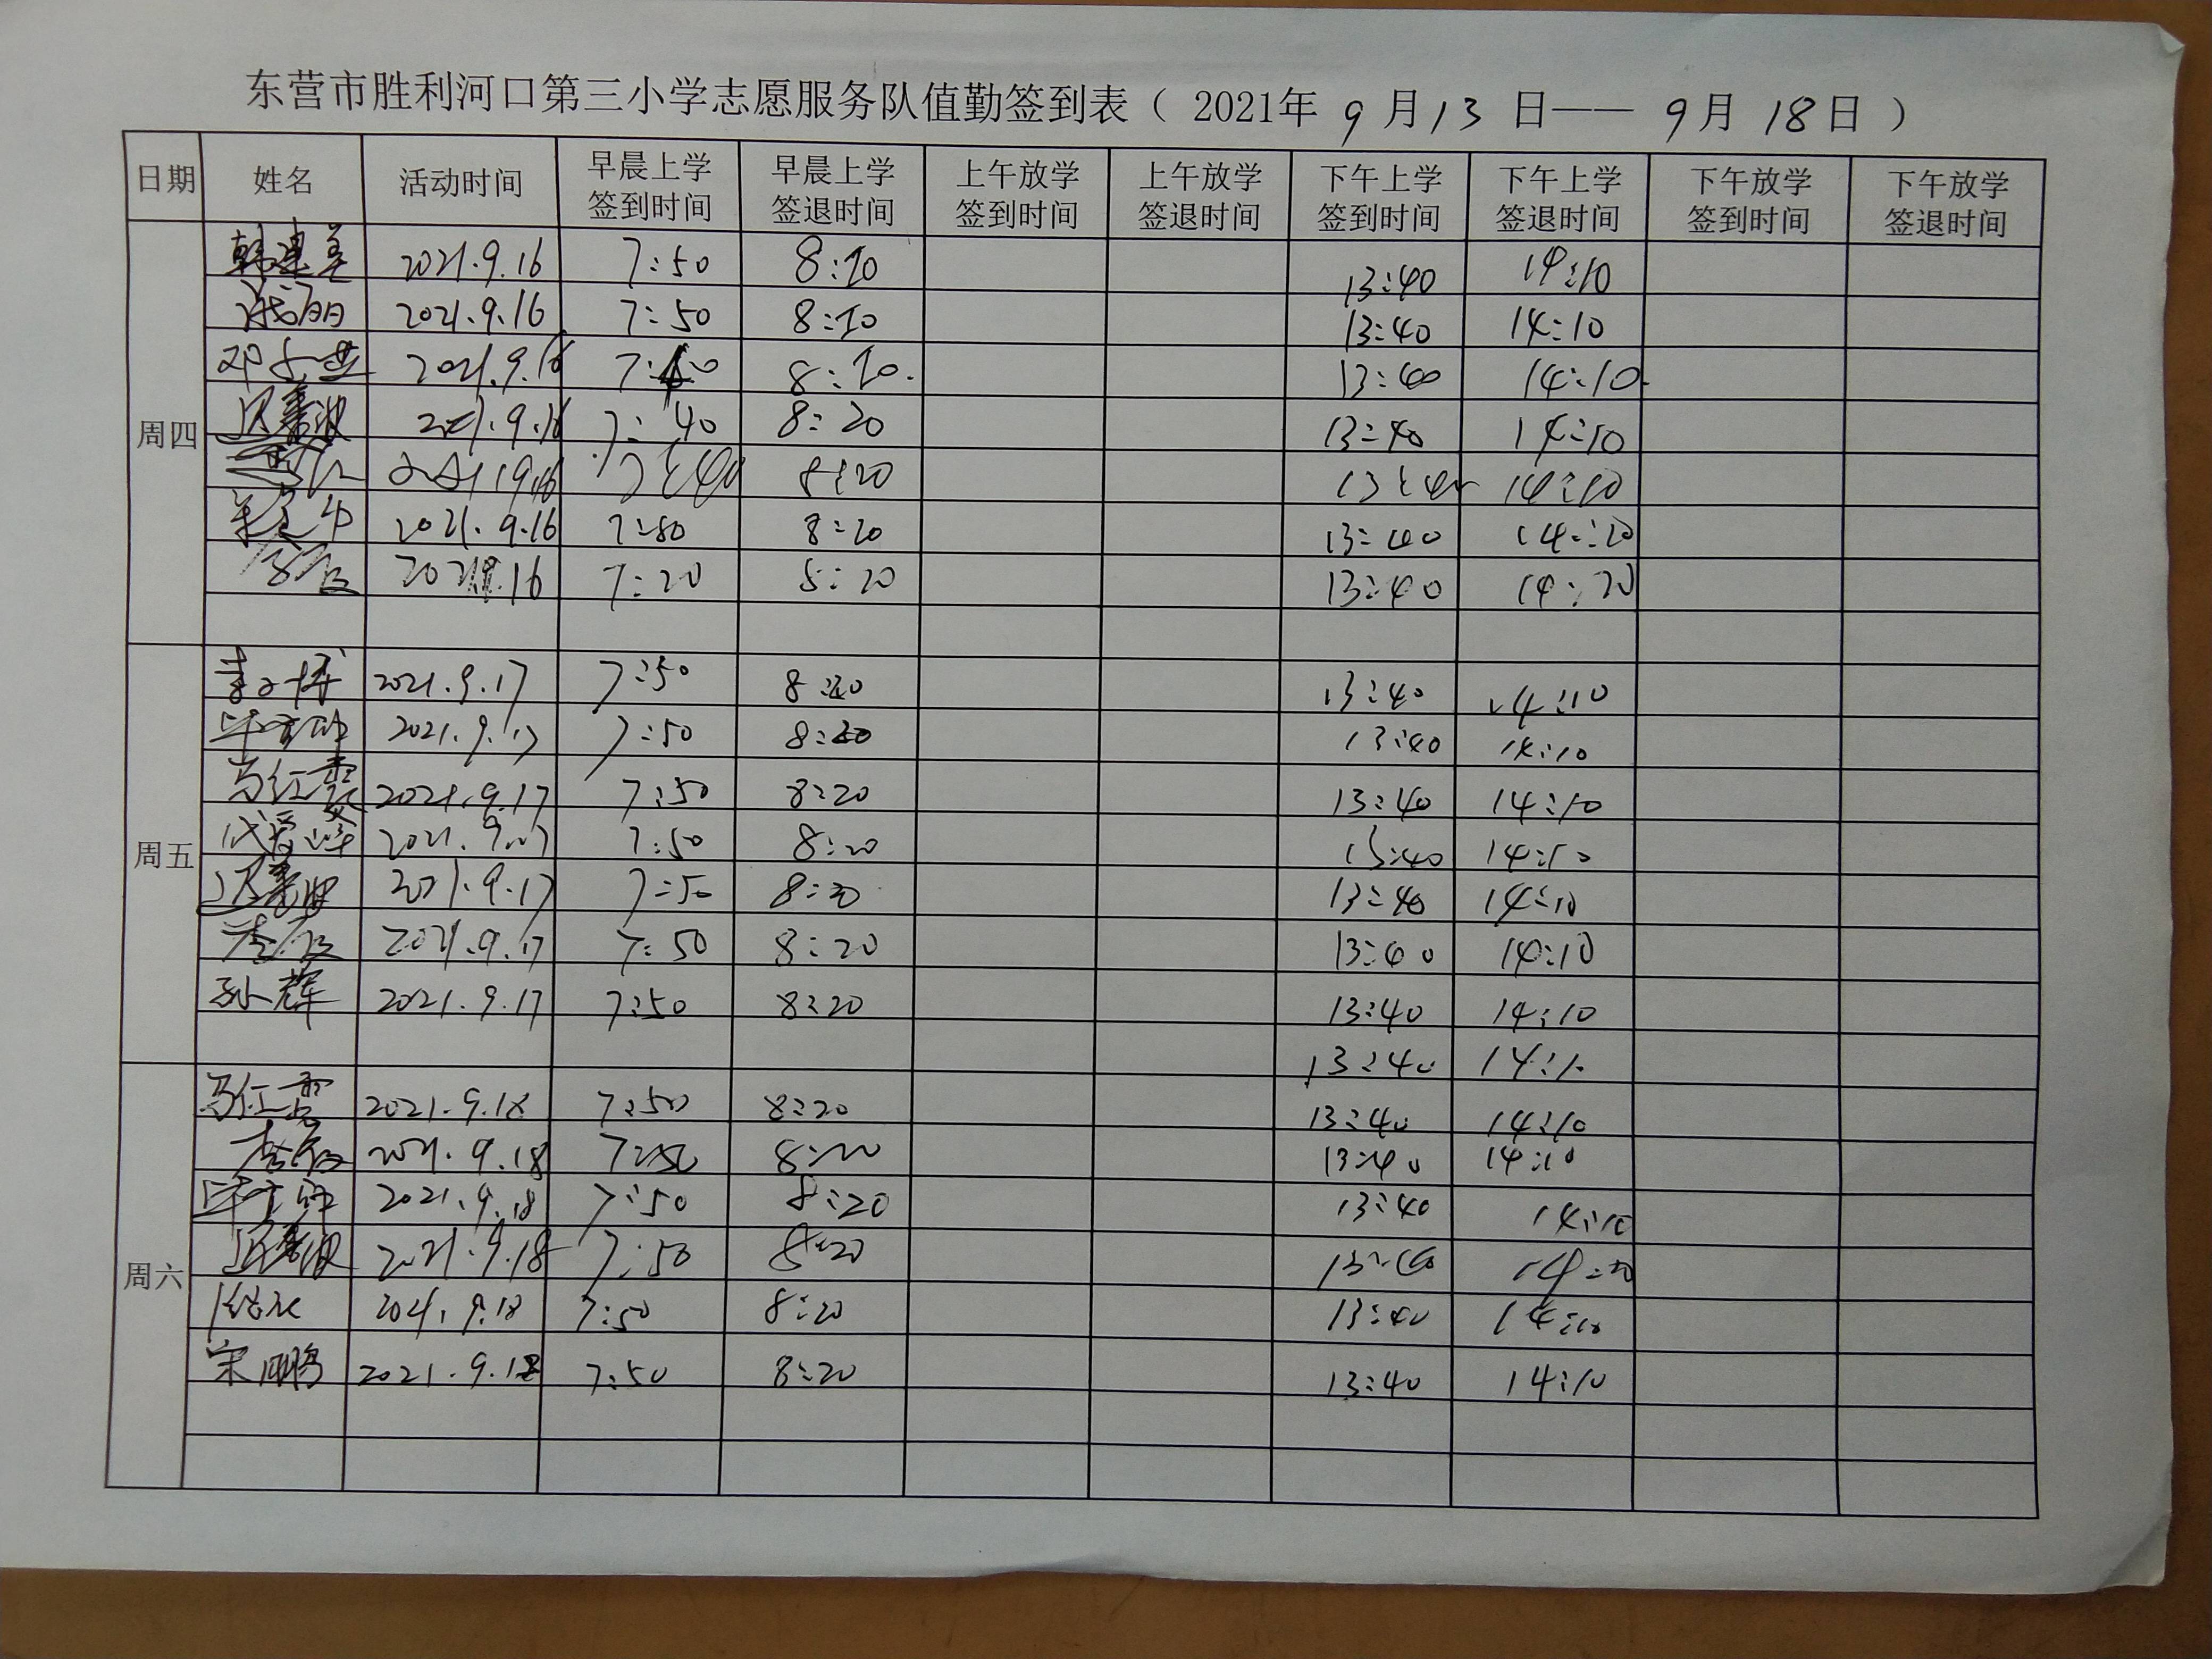 东营市胜利河口第三小学志愿服务队值勤签到表（2021年 9 月 13 日—— 9月 18日）
日期 姓名 活动时间 早晨上学签到时间 早晨上学签退时间 上午放学签到时间 上午放学签退时间 下午上学签到时间 下午上学签退时间 下午放学签到时间 下午放学签退时间
周四
韩建美 2021.9.16 7:50 8:10 13:40 14:10
2021.9.16 7:50 8:10 13:40 14:10
2021.9.16 8:10. 13:40 14:10.
2021.9.16 7:40 8:20 13:40 14:10
2021.9.16 7:40 8:20 13:40 14:10
2021.9.16 7:50 8:20 13:40 14:20
2021.9.16 7:20 13:40 14:20
周五
2021.9.17 7:50 13:40 14:10
2021.9.17 7:50 13:40 14:10
马红霞 2021.9.17 7:50 8:20 13:40 14:10
2021.9.17 7:50 8:20 13:40 14:10
2021.9.17 7:50 8:20 13:40 14:10
2021.9.17 7:50 8:20 13:40 14:10
孙辉 2021.9.17 7:50 8:20 13:40 14:10
13:40 14:10
周六
2021.9.18 7:50 8:20 13:40 14:10
2021.9.18 7:50 8:20 13:40 14:10
2021.9.18 7:50 8:20 13:40 14:10
2021.9.18 7:50 8:20
2021.9.18 7:50 8:20 13:40 14:10
宋鹏 2021.9.18 7:50 8:20 13:40 14:10